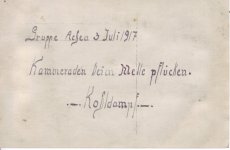 Gruppe Aefea 3 Juli 1917
Kammeraden beim Melle pflücken.
—.— Kohldampf —.—